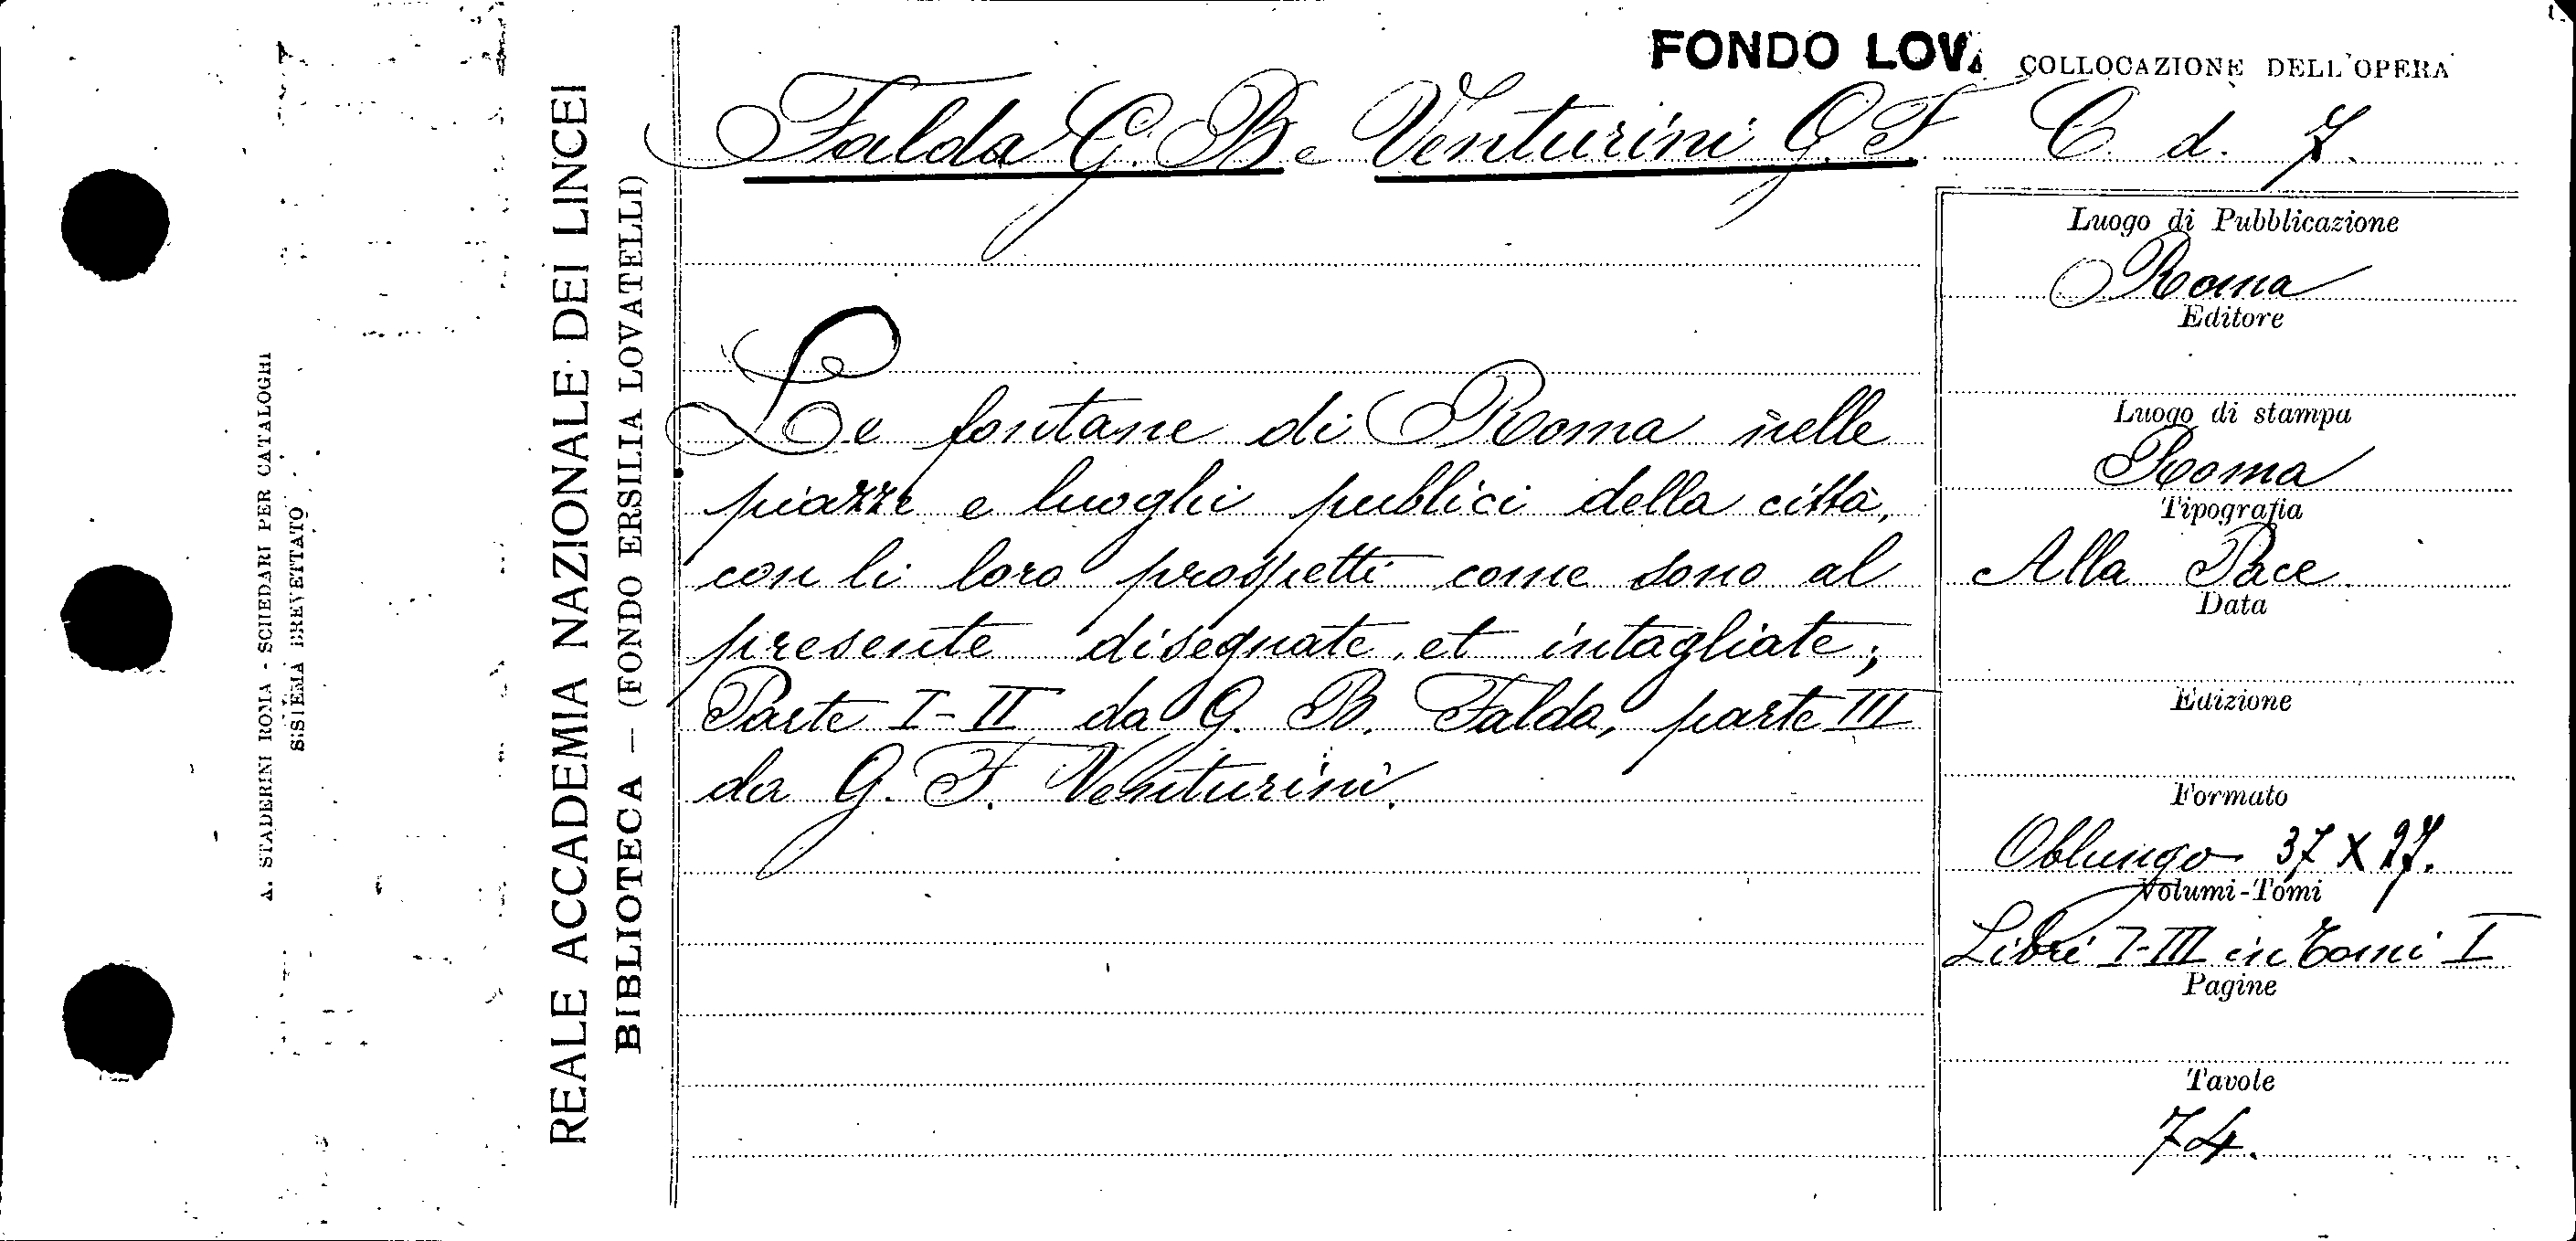 A. STADERINI ROMA - SCHEDARI PER CATALOGHI
SISTEMA BREVETTATO
REALE ACCADEMIA NAZIONALE DEI LINCEI
BIBLIOTECA — (FONDO ERSILIA LOVATELLI)
FONDO LOVA
COLLOCAZIONE DELL'OPERA
Falda G. B. e Venturini G. F. C. d. 7.
Le fontane di Roma nelle
piazze e luoghi publici della città,
con li loro prospetti come sono al
presente disegnate, et intagliate;
Parte I-II da G. B. Falda, parte III
da G. F. Venturini.
Luogo di Pubblicazione
Roma
Editore
Luogo di stampa
Roma
Tipografia
Alla Pace
Data
Edizione
Formato
Oblungo 37 X 27.
Volumi-Tomi
Libri I-III in Tomi I
Pagine
Tavole
74.